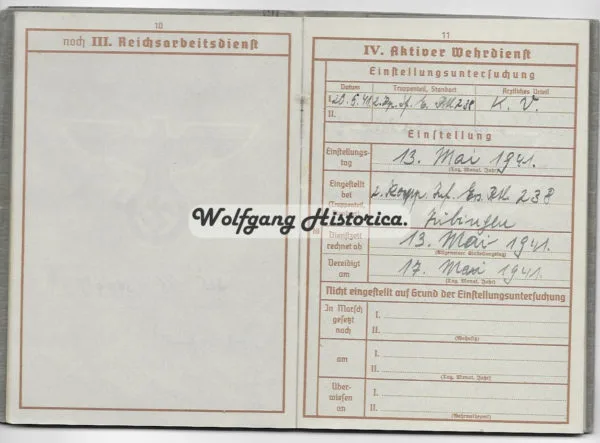 10
noch III. Reichsarbeitsdienst
11
IV. Aktiver Wehrdienst
Einstellungsuntersuchung
Datum Truppenteil, Standort Ärztliches Urteil
I. 20.5.41 2. Kp. Inf. E. Btl. 238 K. V.
II.
Einstellung
Einstellungs-
tag
13. Mai 1941.
(Tag, Monat, Jahr)
Eingestellt
bei
(Truppenteil,
2. Komp. Inf. Ers. Btl. 238
Tübingen
Dienstzeit
rechnet ab
13. Mai 1941.
(Allgemeiner Einstellungstag)
Vereidigt
am
17. Mai 1941.
(Tag, Monat, Jahr)
Nicht eingestellt auf Grund der Einstellungsuntersuchung
In Marsch
gesetzt
nach
I.
II.
(Wehrkr.)
am
I.
II.
(Tag, Monat, Jahr)
Über-
wiesen
an
I.
II.
Wolfgang Historica.